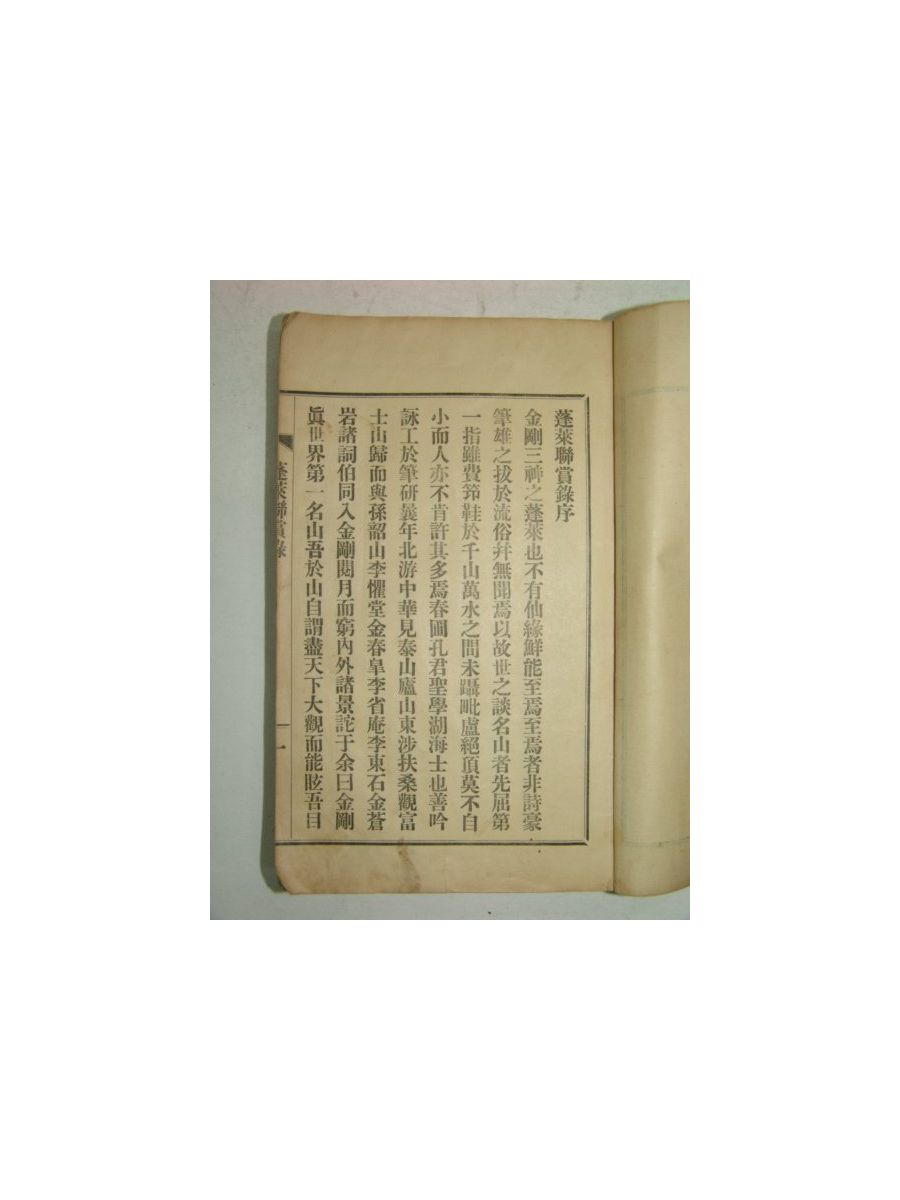 蓬萊聯賞錄序
金剛三神之蓬萊也不有仙緣鮮能至焉至焉者非詩豪
筆雄之拔於流俗幷無聞焉以故世之談名山者先屈第
一指雖費筇鞋於千山萬水之間未躡毗盧絕頂莫不自
小而人亦不肯許其多焉春圃孔君聖學湖海士也善吟
詠工於筆研曩年北游中華見泰山廬山東涉扶桑觀富
士山歸而與孫韶山李懼堂金春皐李省庵李東石金蒼
岩諸詞伯同入金剛閱月而窮內外諸景詫于余曰金剛
眞世界第一名山吾於山自謂盡天下大觀而能眩吾目
蓬萊聯賞錄
一